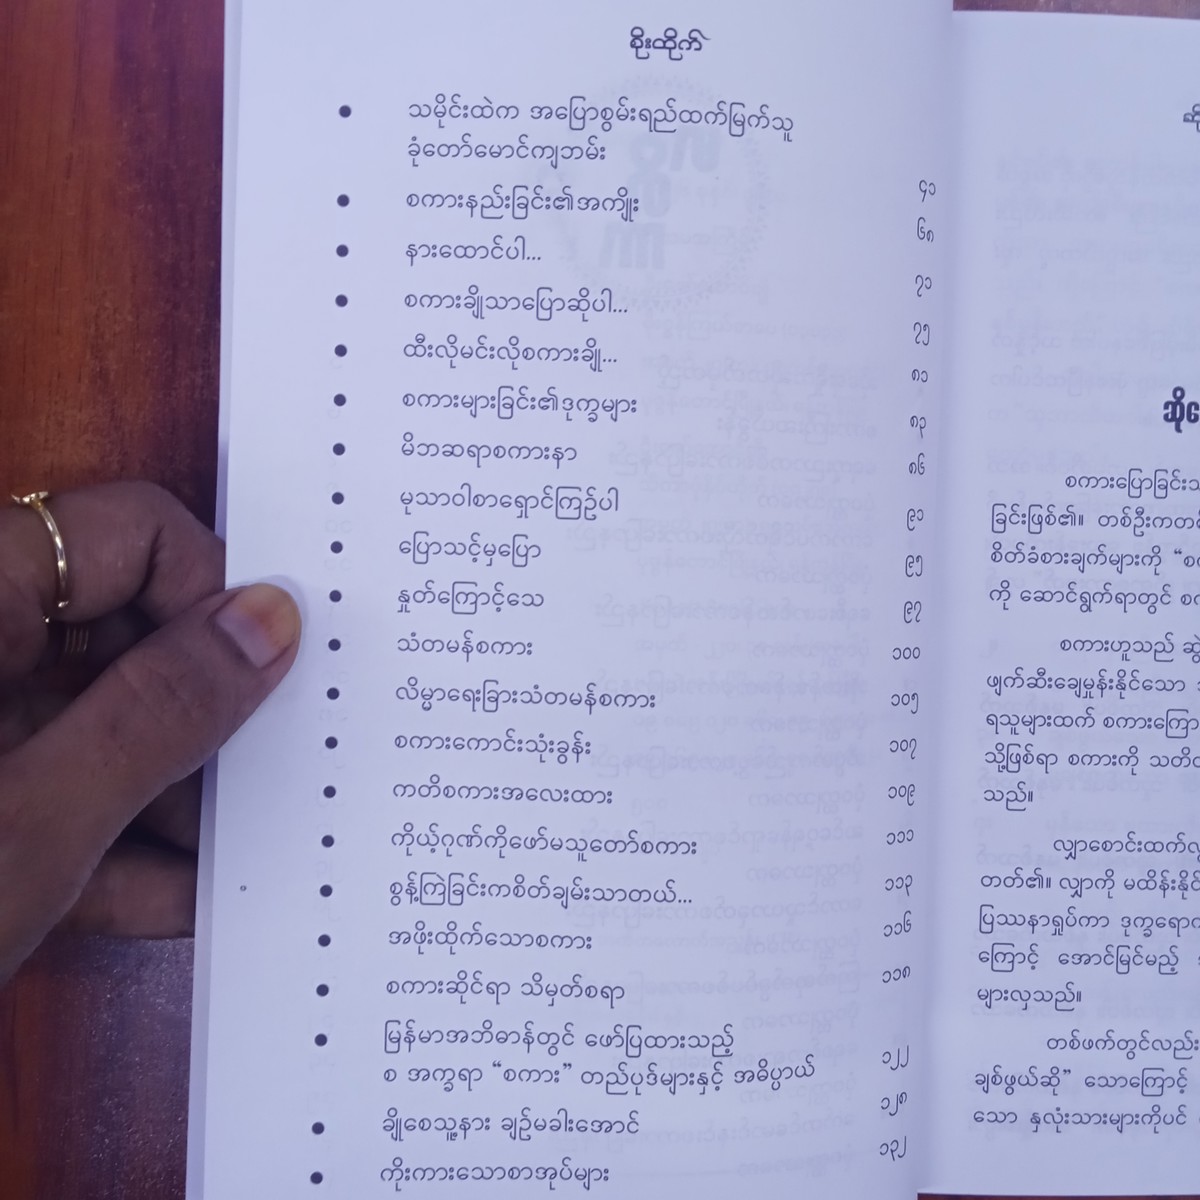 စိုးထိုက်
သမိုင်းထဲက အပြောစွမ်းရည်ထက်မြက်သူ
ခုံတော်မောင်ကျဘမ်း ၄၁
စကားနည်းခြင်း၏အကျိုး ၆၈
နားထောင်ပါ... ၇၁
စကားချိုသာပြောဆိုပါ... ၇၅
ထီးလိုမင်းလိုစကားချို... ၈၁
စကားများခြင်း၏ဒုက္ခများ ၈၃
မိဘဆရာစကားနာ ၈၆
မုသာဝါစာရှောင်ကြဉ်ပါ ၉၁
ပြောသင့်မှပြော ၉၅
နှုတ်ကြောင့်သေ ၉၇
သံတမန်စကား ၁၀၀
လိမ္မာရေးခြားသံတမန်စကား ၁၀၅
စကားကောင်းသုံးခွန်း ၁၀၇
ကတိစကားအလေးထား ၁၀၉
ကိုယ့်ဂုဏ်ကိုဖော်မသူတော်စကား ၁၁၁
စွန့်ကြဲခြင်းကစိတ်ချမ်းသာတယ်... ၁၁၃
အဖိုးထိုက်သောစကား ၁၁၆
စကားဆိုင်ရာ သိမှတ်စရာ ၁၁၈
မြန်မာအဘိဓာန်တွင် ဖော်ပြထားသည့်
စ အက္ခရာ “စကား” တည်ပုဒ်များနှင့် အဓိပ္ပာယ် ၁၂၂
ချိုစေသူ့နား ချဉ်မခါးအောင် ၁၂၈
ကိုးကားသောစာအုပ်များ ၁၃၂
စကားပြောခြင်း
ခြင်းဖြစ်၏။ တစ်ဦးကတစ်
စိတ်ခံစားချက်များကို
ကို ဆောင်ရွက်ရာတွင်
စကားဟူသည်
ဖျက်ဆီးချေမှုန်းနိုင်သော
ရသူများထက် စကားကြော
သို့ဖြစ်ရာ စကားကို
သည်။
လျှာစောင်းထက်
တတ်၏။ လျှာကို မထိန်းနိုင်
ပြဿနာရှုပ်ကာ ဒုက္ခရော
ကြောင့် အောင်မြင်မည့်
များလှသည်။
တစ်ဖက်တွင်လည်း
ချစ်ဖွယ်ဆို” သောကြောင့်
သော နှလုံးသားများကိုပင်